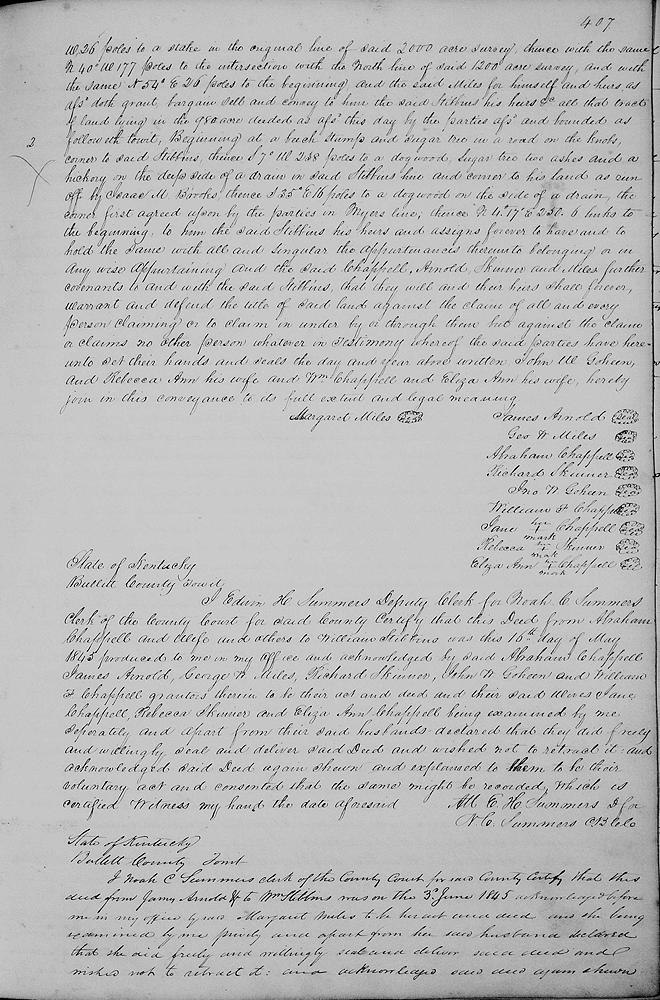 407
W 26 poles to a stake in the original line of said 2000 acre survey, thence with the same
N 40° W 177 poles to the intersection with the North line of said 1200 acre survey, and with
the same N 54° E 26 poles to the beginning and the said Miles for himself and heirs as
afsd doth grant, bargain sell and convey to him the said Stebbins his heirs &c all that tract
of land lying in the 980 acre deeded as afsd this day by the parties afsd and bounded as
followeth towit, Beginning at a beach stump and sugar tree in a road on the knobs,
2
corner to said Stebbins, thence S 7° W 238 poles to a dogwood, sugar tree two ashes and a
hickory on the deep side of a drain in said Stebbins line and corner to his land as run
off by Isaac M. Brooks, thence S 25° E 16 poles to a dogwood on the side of a drain, the
corner first agreed upon by the parties in Myers line, thence N 4.17° E 250.6 links to
the beginning, to him the said Stebbins his heirs and assigns forever to have and to
hold the same with all and singular the appurtinances thereunto belonging or in
any wise appurtaining and the said Chappell, Arnold, Skinner and Miles further
covenants to and with the said Stebbins, that they will and their heirs shall forever,
warrant and defend the title of said land against the claim of all and every
person claiming or to claim in under by or through them but against the claim
or claims no other person whatever in Testimony whereof the said parties have here-
unto set their hands and seals the day and year above written John W Goheen,
and Rebecca Ann his wife and Wm Chappell and Eliza Ann his wife, hereby
join in this conveyance to its full extent and legal meaning
Margaret Miles seal
James Arnold seal
Geo W Miles seal
Abraham Chappell seal
Richard Skinner seal
Jno W Goheen seal
William F Chappell seal
Jane her + mark Chappell seal
Rebecca her + mark Skinner seal
Eliza Ann her + mark Chappell seal
State of Kentucky
Bullitt County Towit,
I Edwin H Summers Deputy Clerk for Noah C Summers
Clerk of the County Court for said County Certify that this Deed from Abraham
Chappell and Wife and others to William Stebbins was this 16th day of May
1845 produced to me in my Office and acknowledged by said Abraham Chappell
James Arnold, George W. Miles, Richard Skinner, John W Goheen and William
F Chappell grantors therein to be their act and deed and their said Wives Jane
Chappell, Rebecca Skinner and Eliza Ann Chappell being examined by me
seperately and apart from their said husbands declared that they did freely
and willingly seal and deliver said Deed and wished not to retract it: and
acknowledged said Deed again shewn and explained to them to be their
voluntary act and consented that the same might be recorded, which is
certified Witness my hand the date aforesaid Att E. H. Summers D for
N. C. Summers CBCoCo
State of Kentucky
Bullitt County Towit
I Noah C Summers clerk of the County Court for said County Certify that this
deed from James Arnold & to Wm Stebbins was on the 3d June 1845 acknowledged before
me in my office by said Margaret Miles to be her act and deed and she being
examined by me privily and apart from her said husband declared
that she did freely and willingly seal and deliver said deed and
wishes not to retract it: and acknowledged said deed again shewn